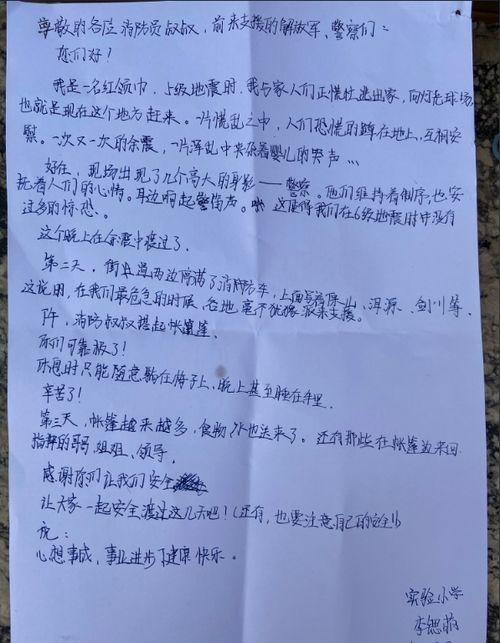 尊敬的各位消防员叔叔，前来支援的解放军、警察们：
您们好！
我是一名红领巾，5级地震时，我与家人们正慌忙逃出家，向灯光球场
也就是现在这个地方赶来。一片慌乱之中，人们恐慌的蹲在地上，互相安
慰。一次又一次的余震，一片混乱中夹杂着婴儿的哭声…
好在，现场出现了几个高大的身影——警察。他们维持着秩序，也安
抚着人们的心情。耳边响起警笛声。这使得我们在6级地震时中没有
过多的惊恐。
这个晚上在余震中渡过了。
第二天，街道两边停满了消防车，上面写着保山、洱源、剑川等，
这说明，在我们最危急的时候，各地毫不犹豫派来支援。
下午，消防叔叔搭起帐篷。
你们可靠极了！
休息时只能随意躺在椅子上，晚上甚至睡在车里。
辛苦了！
第三天，帐篷越来越多，食物、水也送来了。还有那些在帐篷边来回
指挥的哥哥、姐姐、领导，
感谢你们让我们安全
让大家一起安全渡过这几天吧！（还有，也要注意自己的安全！）
祝：
心想事成，事业进步，健康快乐。
实验小学
李